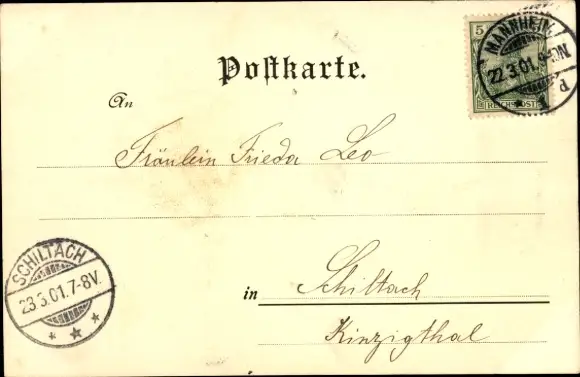 Postkarte.
5
MANNHEIM
22.3.01.
REICHSPOST
An
Fräulein Frieda Leo
SCHILTACH
23.3.01.7-8V.
in Schiltach
Kinzigthal